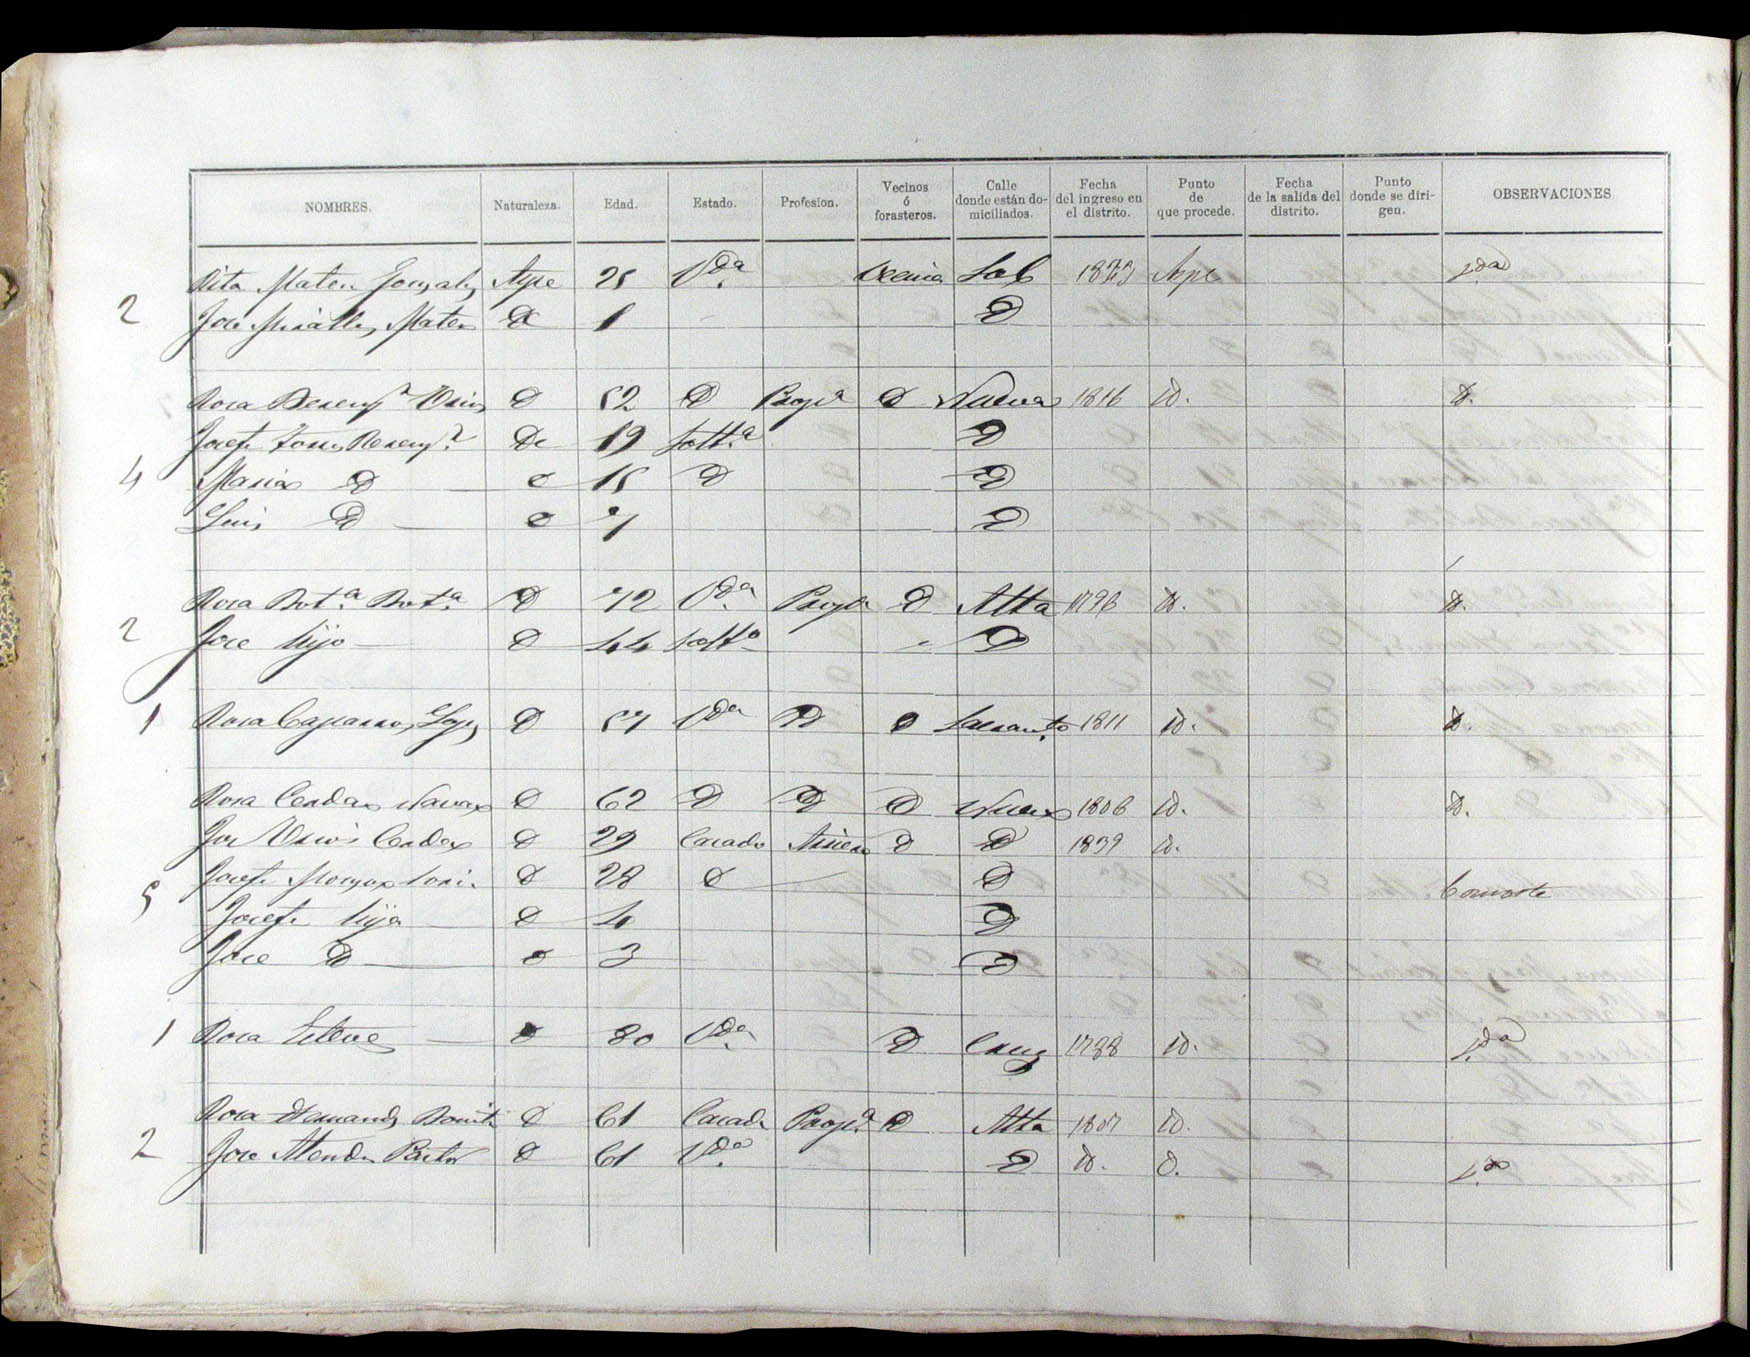 NOMBRES. Naturaleza. Edad. Estado. Profesion. Vecinos ó forasteros. Calle donde están domiciliados. Fecha del ingreso en el distrito. Punto de que procede. Fecha de la salida del distrito. Punto donde se dirigen. OBSERVACIONES
Rita Mateu Gonzalez Aspe 25 Vda. Vecina Sol Aspe Vda
2 Jose Miralles Mateu D 1 D
Rosa D 52 D Propa D Nueva 1816 D. D.
Josefa De 19 Soltª D
4 Maria D D 15 D D
Luis D D 7 D
Rosa Botª Botª D 72 Vda. Propa D Alta 1796 D. D.
2 Jose hijo D 44 Solto D
1 Rosa Lopez D 57 Vda D D 1811 D. D.
Rosa Cerdan Navarro D 62 D D D Nueva 1806 D. D.
Jose Cerdan D 29 Casado D D 1839 D.
Josefa D 28 D D Consorte
5 Josefa hija D 4 D
Jose D D 3 D
1 Rosa Esteve D 80 Vda. D Cruz 1788 D. Vda
Rosa Hernandez D 61 Casada Propª D Alta 1807 D.
2 Jose Pastor D 61 Vdo. D D. D. Vdo